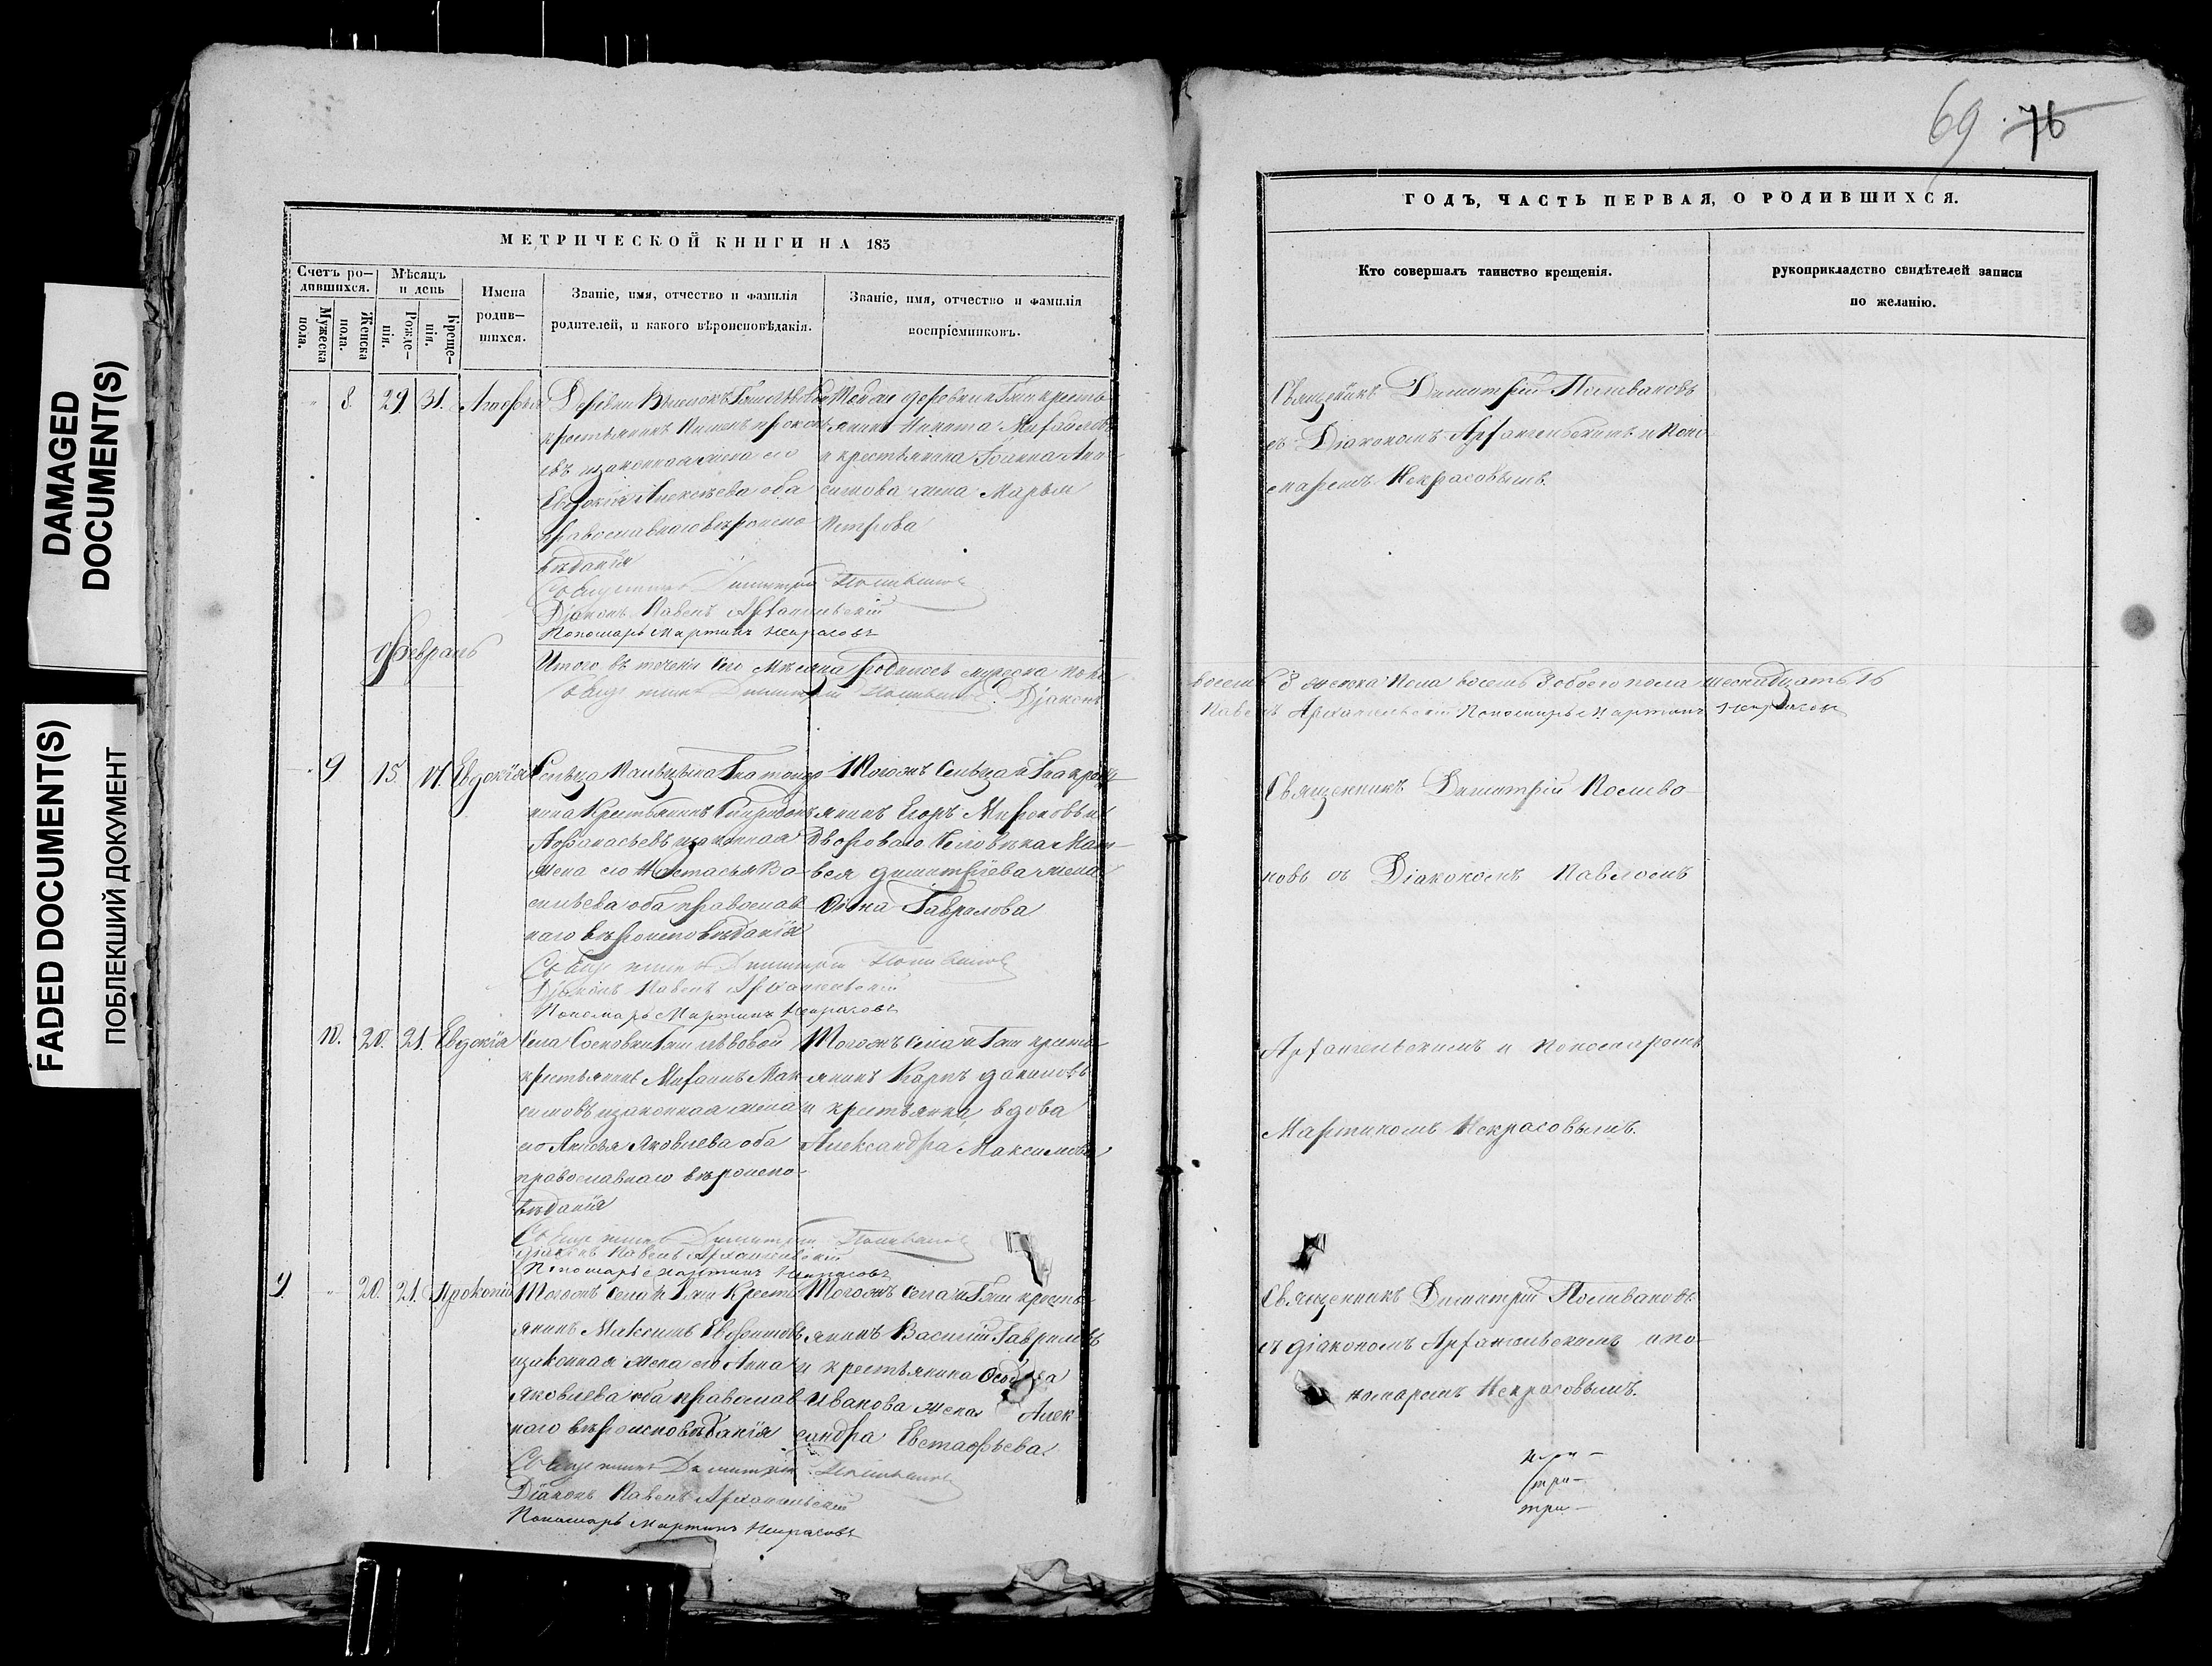 DAMAGED
DOCUMENT(S)
FADED DOCUMENT(S)
ПОБЛЕКШИЙ ДОКУМЕНТ
МЕТРИЧЕСКОЙ КНИГИ НА 185
Счетъ ро-
дившихся.
Мѣсяцъ
и день
Мужеска
пола.
Женска
пола.
Рожде-
нія.
Креще-
нія.
Имена
родив-
шихся.
Званіе, имя, отчество и фамилія
родителей, и какого вѣроисповѣданія.
Званіе, имя, отчество и фамилія
воспріемниковъ.
8. 29 31.
Деревни
крестьянинъ
изаконная жена его
Евдокія Алексѣева оба
православнаго вѣроиспо-
вѣданія
Тойже деревни и Гжи кресть
янинъ Никита Михайловъ
и крестьянина Іоанна
жена Марья
Петрова
Священникъ Димитрій Поливановъ
Діаконъ Павелъ Архангельскій
Пономарь Мартинъ Некрасовъ
Февраль
Итого въ течени сего мѣсяца родилось мужеска пола
Священникъ Димитрій Поливановъ Діаконъ
9 15. 17. Евдокія
Сельца
крестьянинъ
Афанасьевъ изаконная
жена его Настасья Ва
сильева оба православ
наго вѣроисповѣданія
Тогожъ сельца и Гжа
янинъ Егоръ Мироновъ и
Двороваго человѣка Мат
вея Димитріева жена
Гаврилова
Священникъ Димитрій Поливановъ
Діаконъ Павелъ Архангельскій
Пономарь Мартинъ Некрасовъ
10. 20. 21. Евдокія
Села Сосновки Гжи Львовой
крестьянинъ Михаилъ Мак
симовъ изаконная жена
его Яковлева оба
православнаго вѣроиспо-
вѣданія
Тогожъ села и Гжи кресть
янинъ Карпъ
и крестьянка вдова
Александра Максимова
Священникъ Димитрій Поливановъ
Діаконъ Павелъ Архангельскій
Пономарь Мартинъ Некрасовъ
9. 20. 21. Прокопій
Тогожъ села и Гжи Кресть
янинъ Максимъ
изаконная жена его Анна
Яковлева оба православ
наго вѣроисповѣданія
Тогожъ села и Гжи кресть
янинъ Василій Гавриловъ
и крестьянина
Иванова жена Алек
сандра Евстафьева
Священникъ Димитрій Поливановъ
Діаконъ Павелъ Архангельскій
Пономарь Мартинъ Некрасовъ
69 76
ГОДЪ, ЧАСТЬ ПЕРВАЯ, О РОДИВШИХСЯ.
Кто совершалъ таинство крещенія.
рукоприкладство свидѣтелей записи
по желанію.
Священникъ Димитрій Поливановъ
съ Діакономъ Архангельскимъ и Поно
маремъ Некрасовымъ.
восемь 8 женска пола восемь 8 обоего пола шеснадцать 16
Павелъ Архангельскій Пономарь Мартинъ Некрасовъ
Священникъ Димитрій Поливо
новъ съ Діакономъ Павломъ
Архангельскимъ и Пономаремъ
Мартиномъ Некрасовымъ.
Священникъ Димитрій Поливановъ
съ діакономъ Архангельскимъ и по
номаремъ Некрасовымъ.
три-
три-